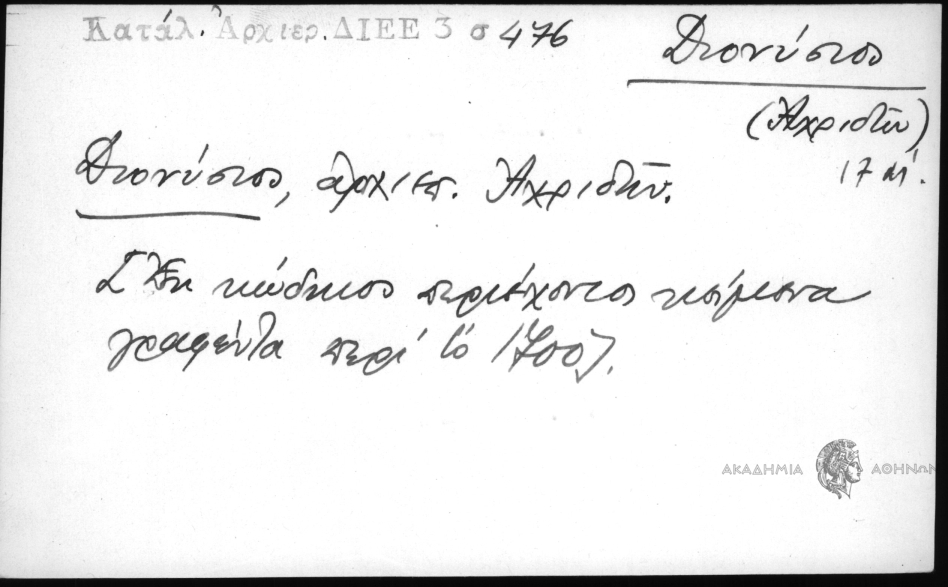 Κατάλ. Ἀρχιερ. ΔΙΕΕ 3 σ 476
Διονύσιος
(Ἀχριδῶν)
17 αἰ.
Διονύσιος, ἀρχιεπ. Ἀχριδῶν.
[Ἐκ κώδικος περιέχοντος κείμενα
γραφέντα περὶ τὸ 1700].
ΑΚΑΔΗΜΙΑ ΑΘΗΝΩΝ